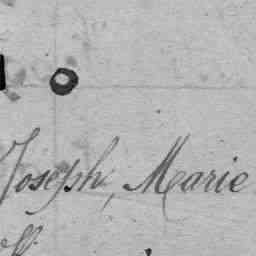 Joseph, Marie